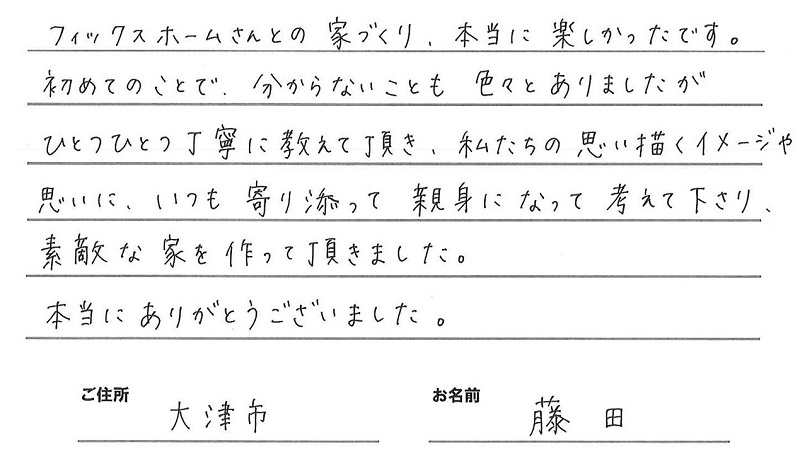 フィックスホームさんとの家づくり、本当に楽しかったです。
初めてのことで、分からないことも色々とありましたが
ひとつひとつ丁寧に教えて頂き、私たちの思い描くイメージや
思いに、いつも寄り添って親身になって考えて下さり、
素敵な家を作って頂きました。
本当にありがとうございました。
ご住所 大津市 お名前 藤田